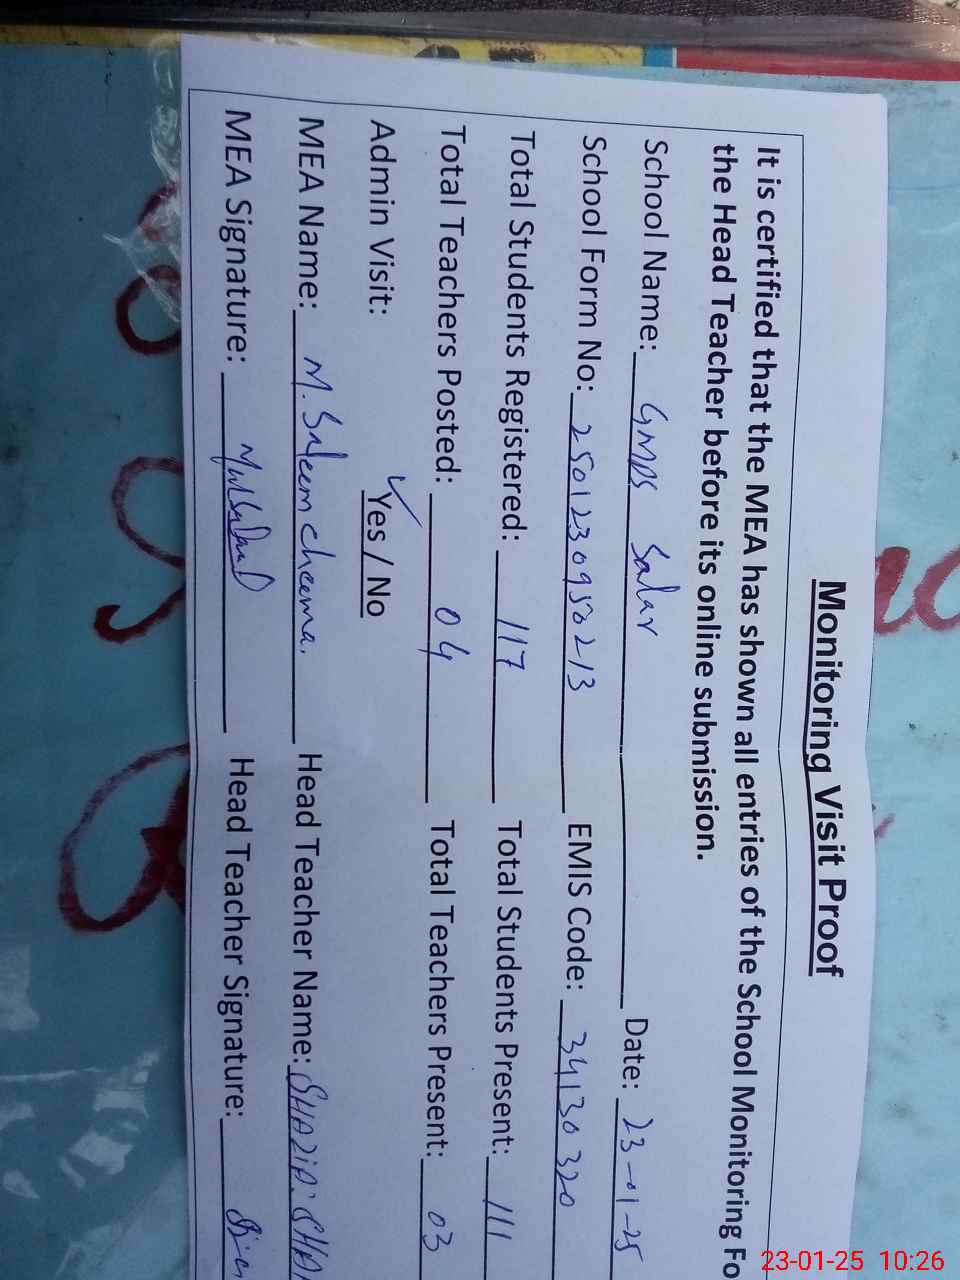 Monitoring Visit Proof
It is certified that the MEA has shown all entries of the School Monitoring Fo
the Head Teacher before its online submission.
School Name: GMPS Salar Date: 23-01-25
School Form No: 2501230950213 EMIS Code: 34130320
Total Students Registered: 117 Total Students Present: 111
Total Teachers Posted: 04 Total Teachers Present: 03
Admin Visit: ✓Yes / No
MEA Name: M. Saleem cheema. Head Teacher Name: SHAZIA
MEA Signature: Head Teacher Signature:
23-01-25 10:26